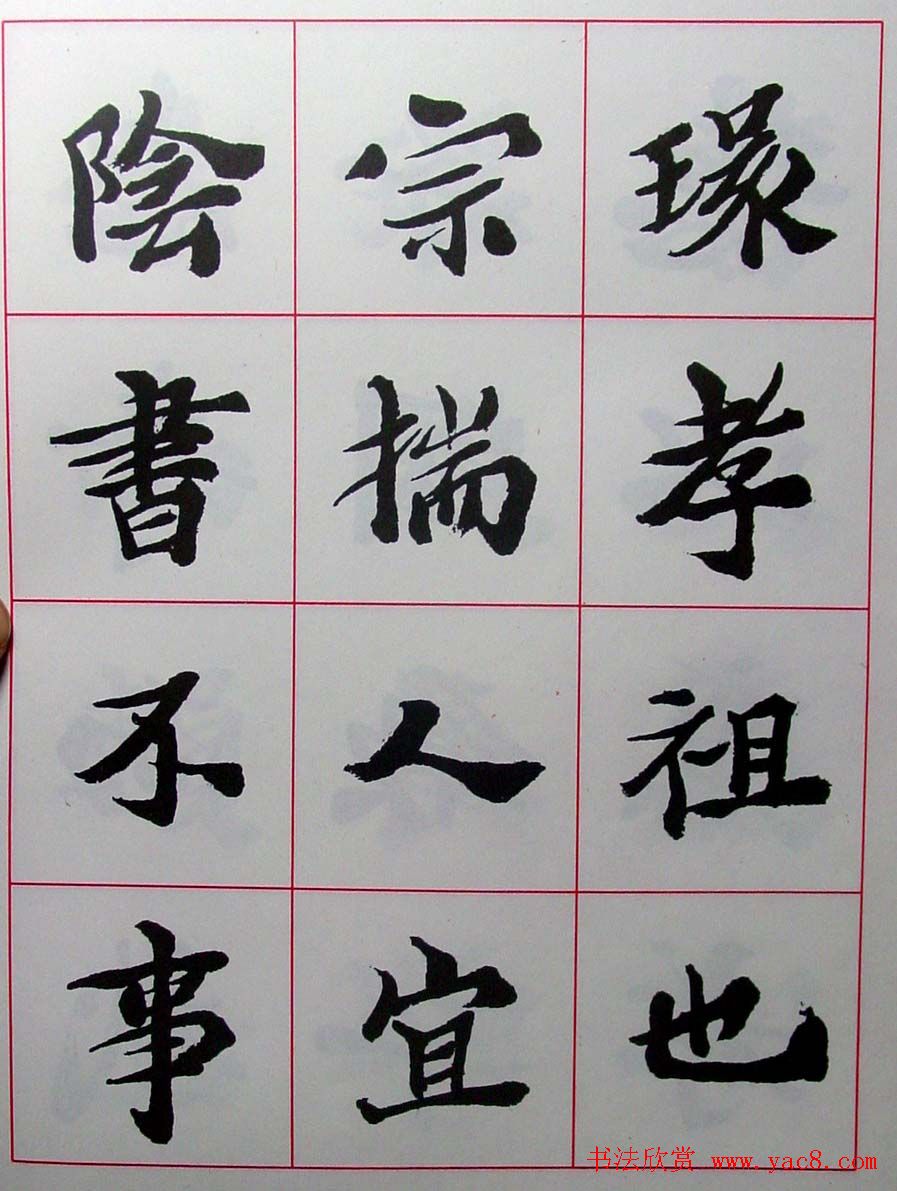 瑑孝祖也
宗揣人宜
陰書不事
书法欣赏 www.yac8.com